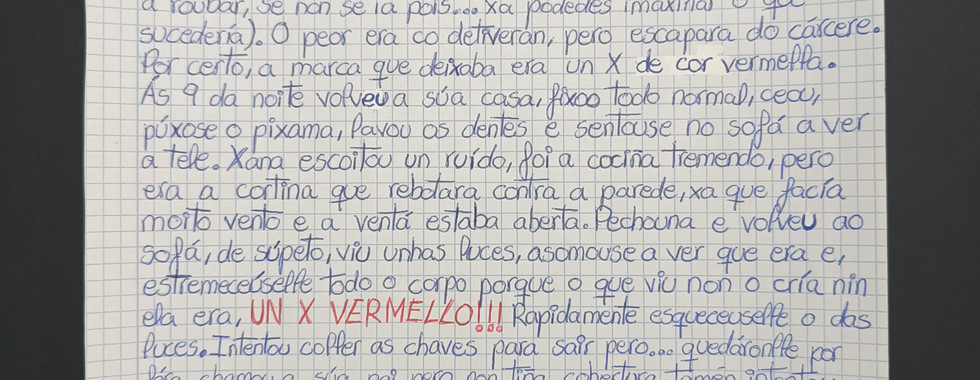 a roubar, se non se ía pois... xa podedes imaxinar o que
sucedería). O peor era co detiveran, pero escapara do cárcere.
Por certo, a marca que deixaba era un X de cor vermella.
Ás 9 da noite volveu a súa casa, fixoo todo normal, ceou,
púxose o pixama, lavou os dentes e sentouse no sofá a ver
a tele. Xana escoitou un ruído, foi a cociña tremendo, pero
era a cortina que rebotara contra a parede, xa que facía
moito vento e a ventá estaba aberta. Pechouna e volveu ao
sofá, de súpeto, viu unhas luces, asomouse a ver que era e,
estremeceuselle todo o corpo porque o que viu non o cría nin
ela era, UN X VERMELLO!!! Rapidamente esqueceuselle o das
luces. Intentou coller as chaves para saír pero... quedáronlle por
chamou a súa nai pero non tiña cobertura tamén